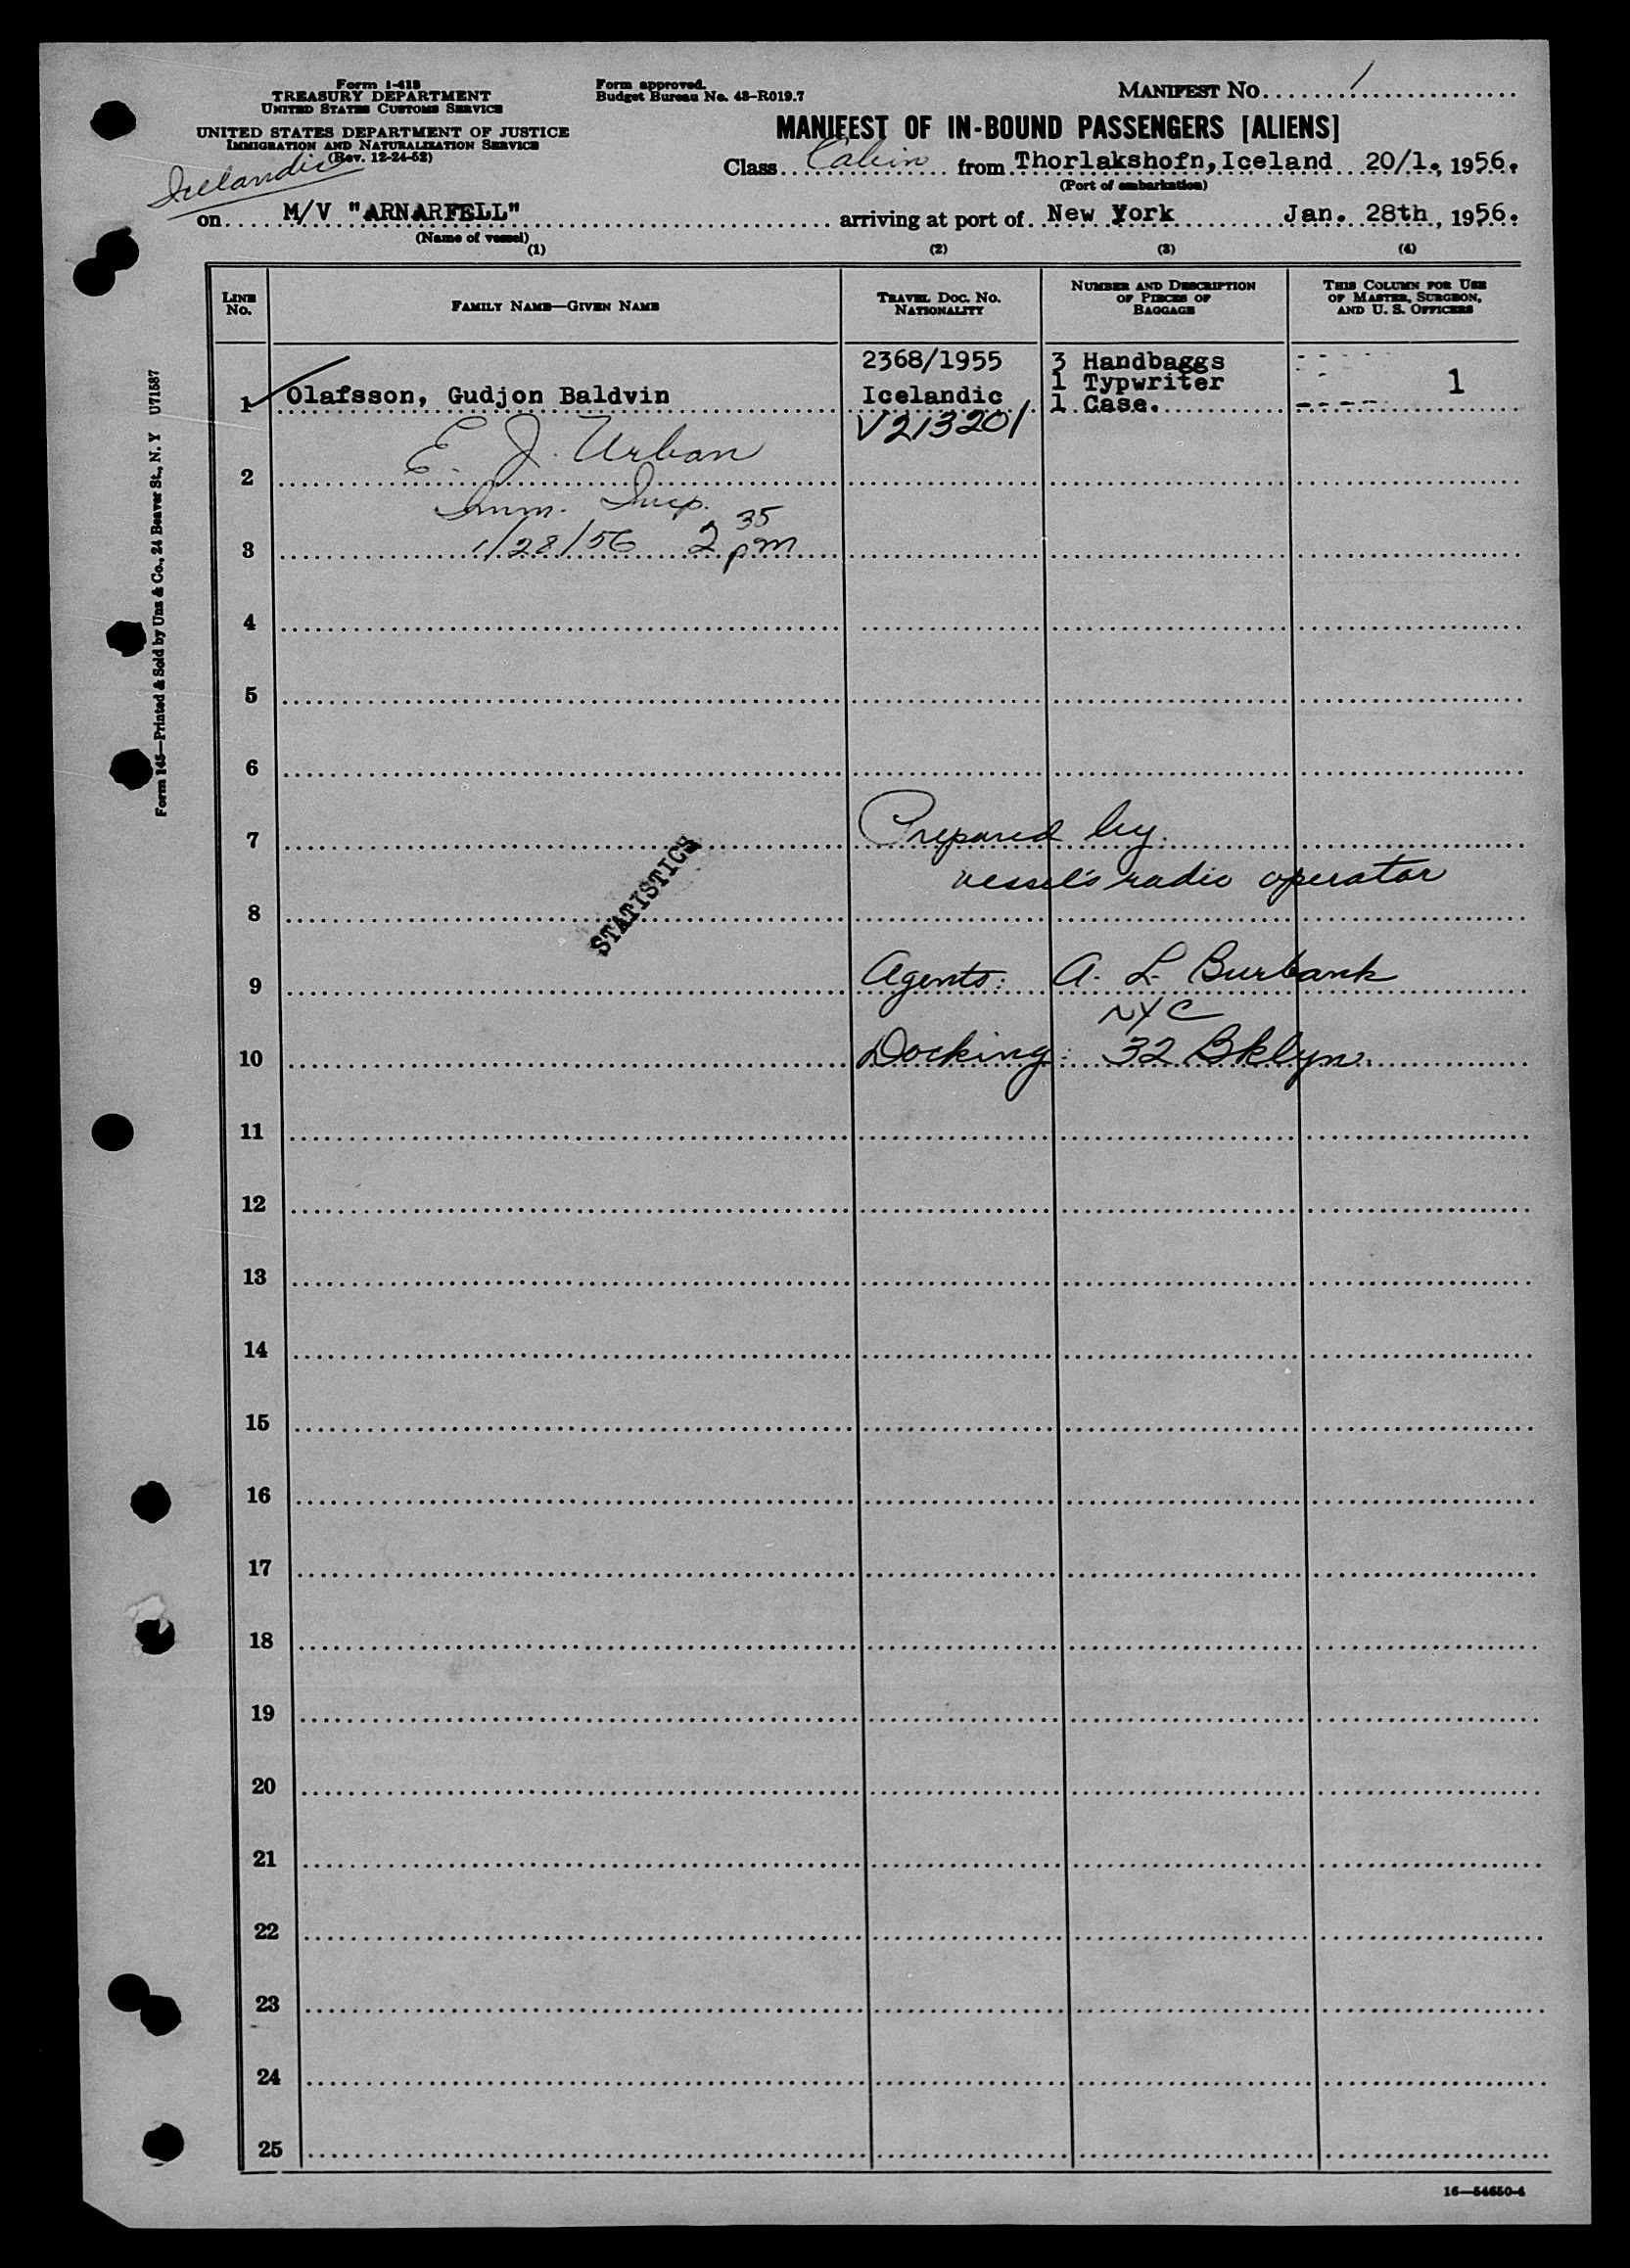 Form I-418
TREASURY DEPARTMENT
UNITED STATES CUSTOMS SERVICE
UNITED STATES DEPARTMENT OF JUSTICE
IMMIGRATION AND NATURALIZATION SERVICE
(Rev. 12-24-52)
Icelandic
Form approved.
Budget Bureau No. 43-R019.7
MANIFEST No. 1
MANIFEST OF IN-BOUND PASSENGERS [ALIENS]
Class Cabin from Thorlakshofn, Iceland 20/1., 1956.
(Port of embarkation)
on M/V "ARNARFELL" arriving at port of New York Jan. 28th, 1956.
(Name of vessel)
(1) (2) (3) (4)
LINE No. FAMILY NAME—GIVEN NAME TRAVEL DOC. NO. NATIONALITY NUMBER AND DESCRIPTION OF PIECES OF BAGGAGE THIS COLUMN FOR USE OF MASTER, SURGEON, AND U. S. OFFICERS
2368/1955 3 Handbaggs - - - - -
1 Typwriter - 1
1 Olafsson, Gudjon Baldvin Icelandic 1 Case. - - - - -
V213201
E. J. Urban
2
Imm. Insp.
3 1/28/56 2 35 pm
4
5
6
7 Prepared by
vessel's radio operator
8
STATISTICS
9 Agents: A. L. Burbank
NYC
10 Docking: 32 Bklyn.
11
12
13
14
15
16
17
18
19
20
21
22
23
24
25
16—54650-4
Form 145—Printed & Sold by Unz & Co., 24 Beaver St., N. Y U71587